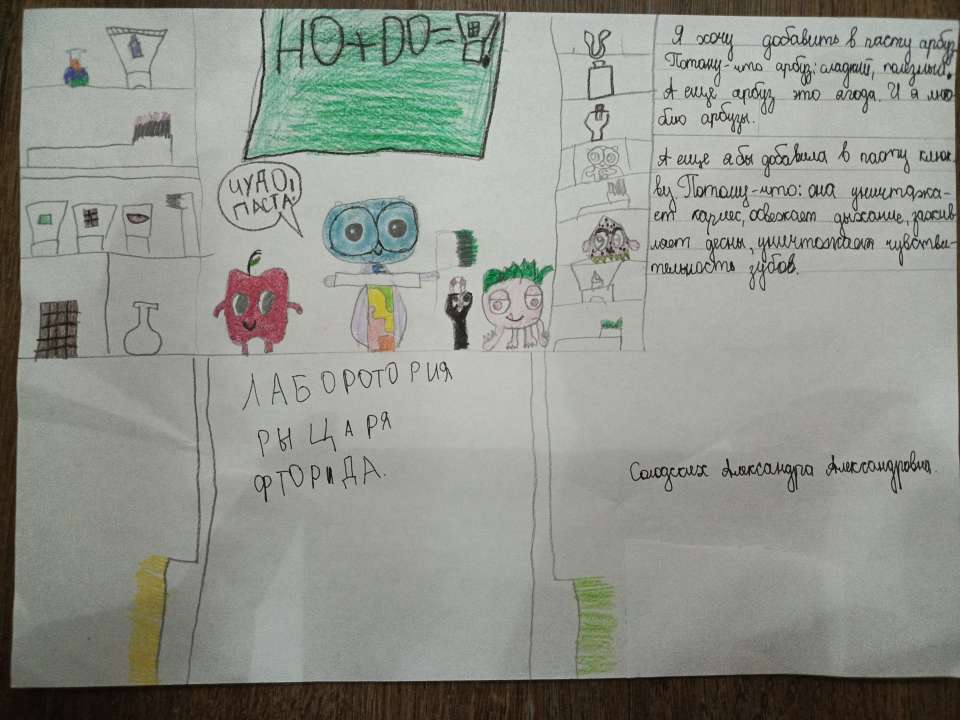 НО+DO=
ЧУДО,
ПАСТА!
Я хочу добавить в пасту арбуз
Потому-что арбуз: сладкий, полезный.
А ещё арбуз это ягода. И я лю-
блю арбузы.
А еще я бы добавила в пасту клюк-
ву Потому-что: она уништжа-
ет кариес, освежает дыхание, зажив
ляет десны, уничтожает чувстви-
тельность зубов.
ЛАБОРОТОРИЯ
РЫЦАРЯ
ФТОРИДА.
Солодских Александра Александровна.